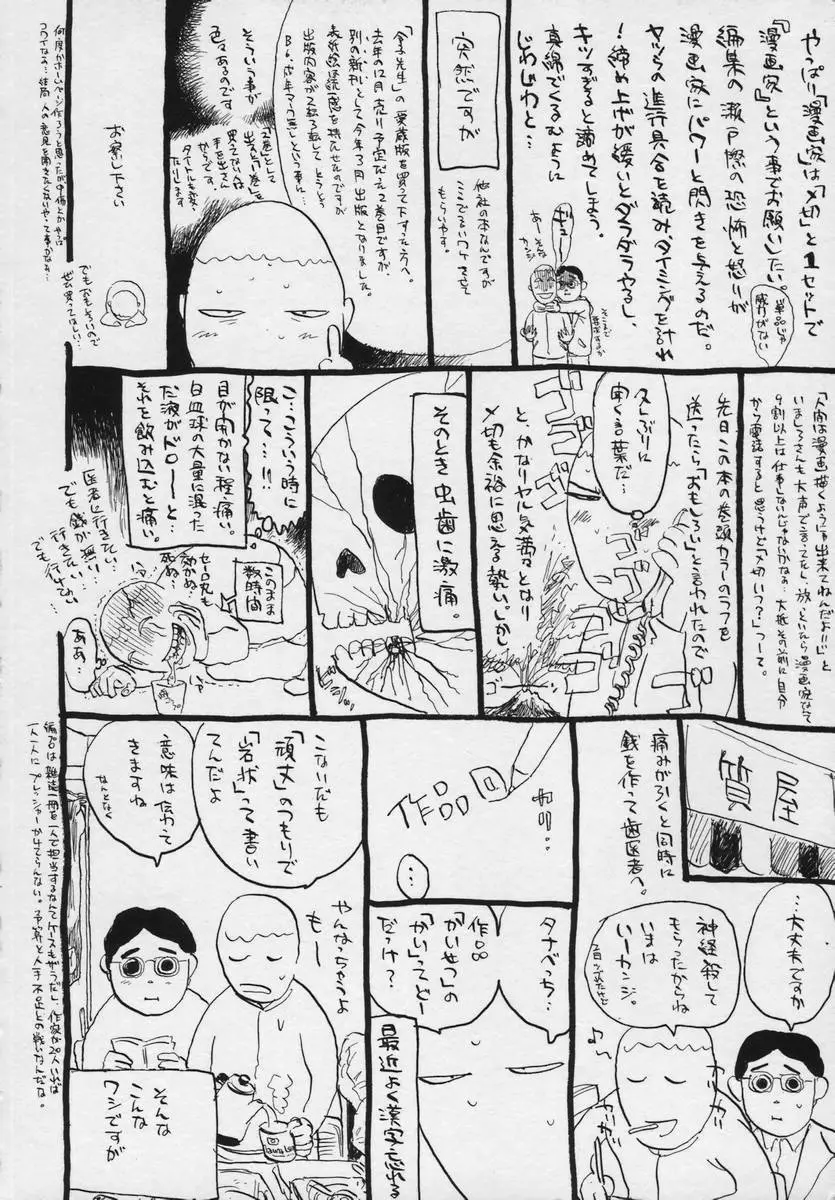 やっぱり「漫画家」は「〆切」と1セットで
『漫画家』という事でお願いしたい。
編集の瀬戸際の恐怖と怒りが
漫画家にパワーと閃きを与えるのだ。
ヤツらの進行具合を読み、タイミングを計れ
!締め上げが緩いとダラダラやるし、
キツすぎると諦めてしまう。
真綿でくるむように
じわじわと…
単品じゃ
威力がない
ギュ
あーそんな
カンジ
そこまで
突然ですが
他社の本なんですが
ここでことワケを立て
もらいやす。
「金子先生」の愛蔵版を買って下すった方へ。
去年の12月売り予定だった2巻目ですが
別の新刊として今年3月出版となりました。
表紙絵は読感を持たせたのですが
そういう事が
色々あるのです
「2巻」として
出すと「1巻」を
買ってない人は
手を出さん
からです。
タイトルも変え
たりします
お察し下さい
でもおもしろいので
ぜひ買ってほしい…
何度かホームページ作ろうと思ったが
コワイなぁ…結局人の意見を聞きたくないやつて事かなぁ…
「人間は漫画描くようには出来てねんだよ!!」と
いましろさんも大声で言ってたし、放っといたら漫画家なんて
9割以上は仕事しないんじゃないかなぁ。大抵その前に自分
から電話すると思うけど「〆切いつ?」つーて。
先日この本の巻頭カラーのラフを
送ったら「おもしろい」と言われたので
久しぶりに
聞く言葉だ…
ゴゴゴゴ
ゴゴゴ
と、かなりヤル気満々となり
〆切も余裕に思える勢い。しか
ゴ
そのとき虫歯に激痛。
こ…こういう時に
限って…!!
目が開かない程痛い。
白血球の大量に混った
だ液がドローーと…
それを飲み込むと痛い。
このまま
数時間
セーロ丸も
効かぬ…
死ぬ…
医者に行きたい
でも銭が無い…
行きたい…
でも行けない…
ああ…
質屋
痛みが引くと同時に
銭を作って歯医者へ。
…大丈夫ですか
神経殺して
もらったからね
いまは
いーカンジ。
2日つぶれたけど
♪
カリカリ
カリカリ
作品回
カリ…
…
タナベっち…
作品
「かいせつ」の
「かい」ってどー
だっけ?
最近よく漢字忘れる
こないだも
「頑丈」のつもりで
「岩状」って書い
てんだよ
意味は伝わって
きますね
なんとなく
やんなっちゃうよ
もー
そんな
こんな
ワシですが
編プロは雑誌一冊を一人で担当するなんてケースもザラだし、作家が20人いれば
一人一人にプレッシャーかけてらんない。予算と人手不足との戦いなんだな。